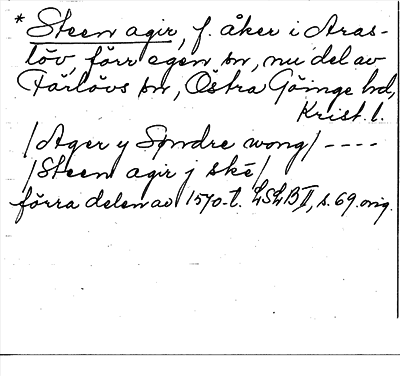 * Steen agir, f. åker i Aras-
löv, förr egen sn, nu del av
Färlövs sn, Östra Göinge hd,
Krist. l.
/Ager y Søndre wong/ ----
/Steen agir j ske/
förra delen av 1570-t. LSLB II, s. 69. orig.